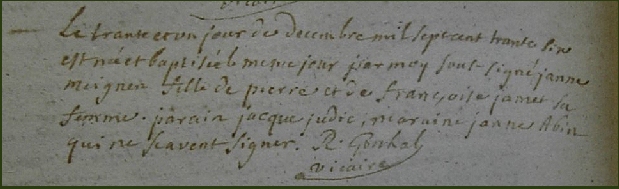 Le trante et un jour de decembre mil sept cent trante six
est née et baptisée le meme jour par moy sous-signé janne
meignen fille de pierre et de françoise jamet sa
femme. parain jacque judic, maraine janne Abin
qui ne scavent signer. R.
vicaire